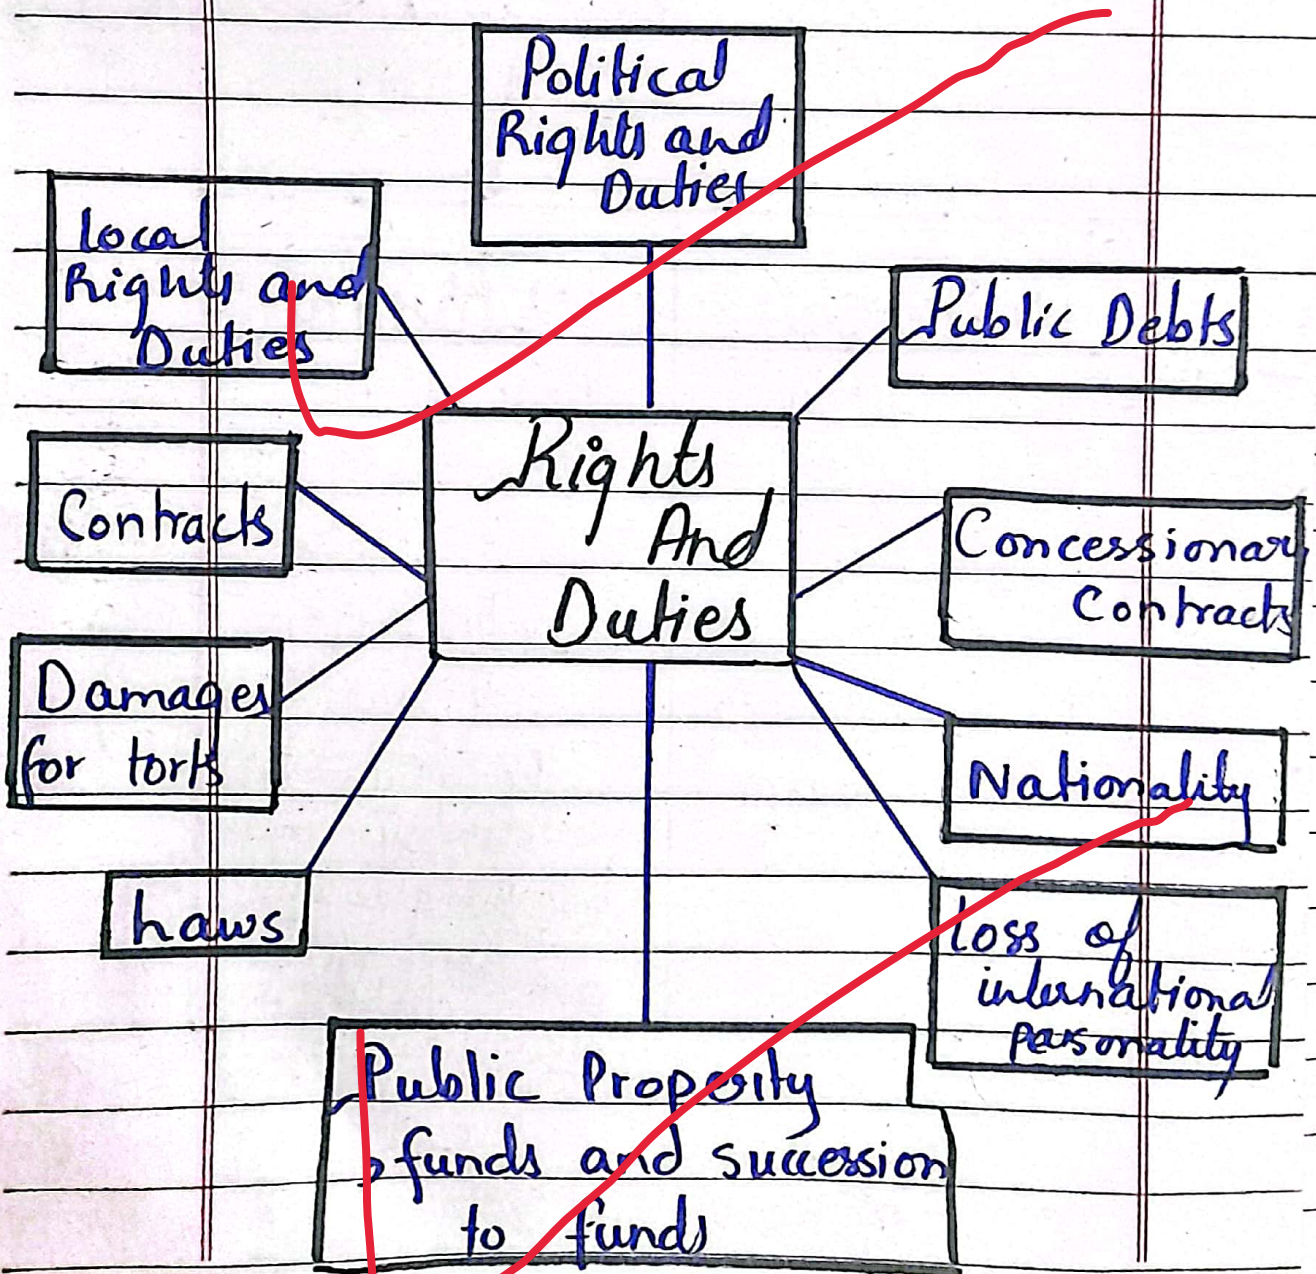 Political
Rights and
Duties
Local
Rights and
Duties
Public Debts
Rights
And
Duties
Contracts
Concessionary
Contracts
Damages
for torts
Nationality
Laws
Loss of
international
personality
Public Properity
, funds and succession
to funds